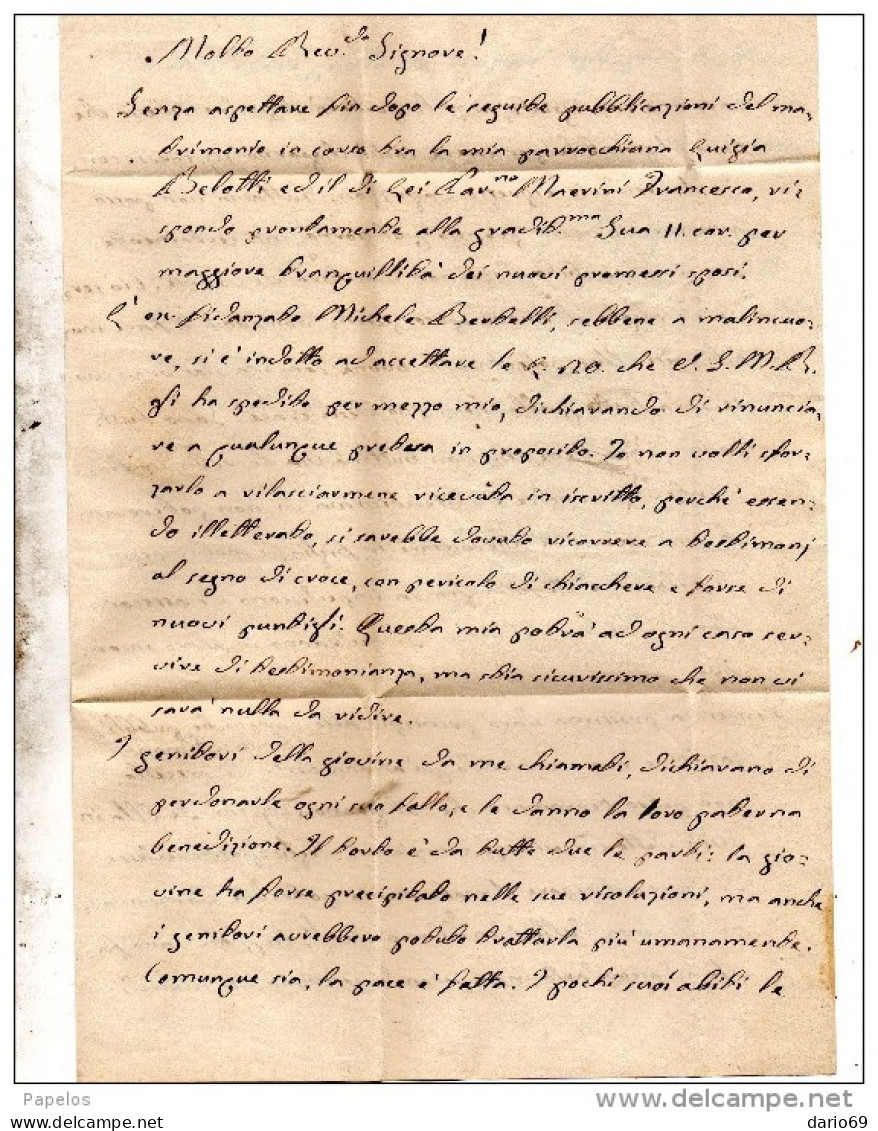 Molto Rev.do Signore!
Senza aspettare fin dopo le seguite pubblicazioni del ma-
trimonio in corso tra la mia parrocchiana Luigia
Belotti ed il di Lei Par.no Maerini Francesco, ri-
spondo prontamente alla gradit.ma Sua 11. cor. per
maggiore tranquillità dei nuovi promessi sposi.
L'ex fidanzato Michele Bertelli, sebbene a malincuo-
re, si è indotto ad accettare le £. 20. che V. S. M. R.
gli ha spedito per mezzo mio, dichiarando di rinuncia-
re a qualunque pretesa in proposito. Io non volli sfor-
zarlo a rilasciarmene ricevuta in iscritto, perchè essen-
do illetterato, si sarebbe dovuto ricorrere a testimonj
al segno di croce, con pericolo di chiacchere e forse di
nuovi puntigli. Questa mia potrà ad ogni caso ser-
vire di testimonianza, ma stia sicurissimo che non vi
sarà nulla da ridire.
I genitori della giovine da me chiamati, dichiarano di
perdonarle ogni suo fallo, e le danno la loro paterna
benedizione. Il torto è da tutte due le parti: la gio-
vine ha forse precipitato nelle sue risoluzioni, ma anche
i genitori avrebbero potuto trattarla più umanamente.
Comunque sia, la pace è fatta. I pochi suoi abiti le
Papelos
www.delcampe.net
dario69